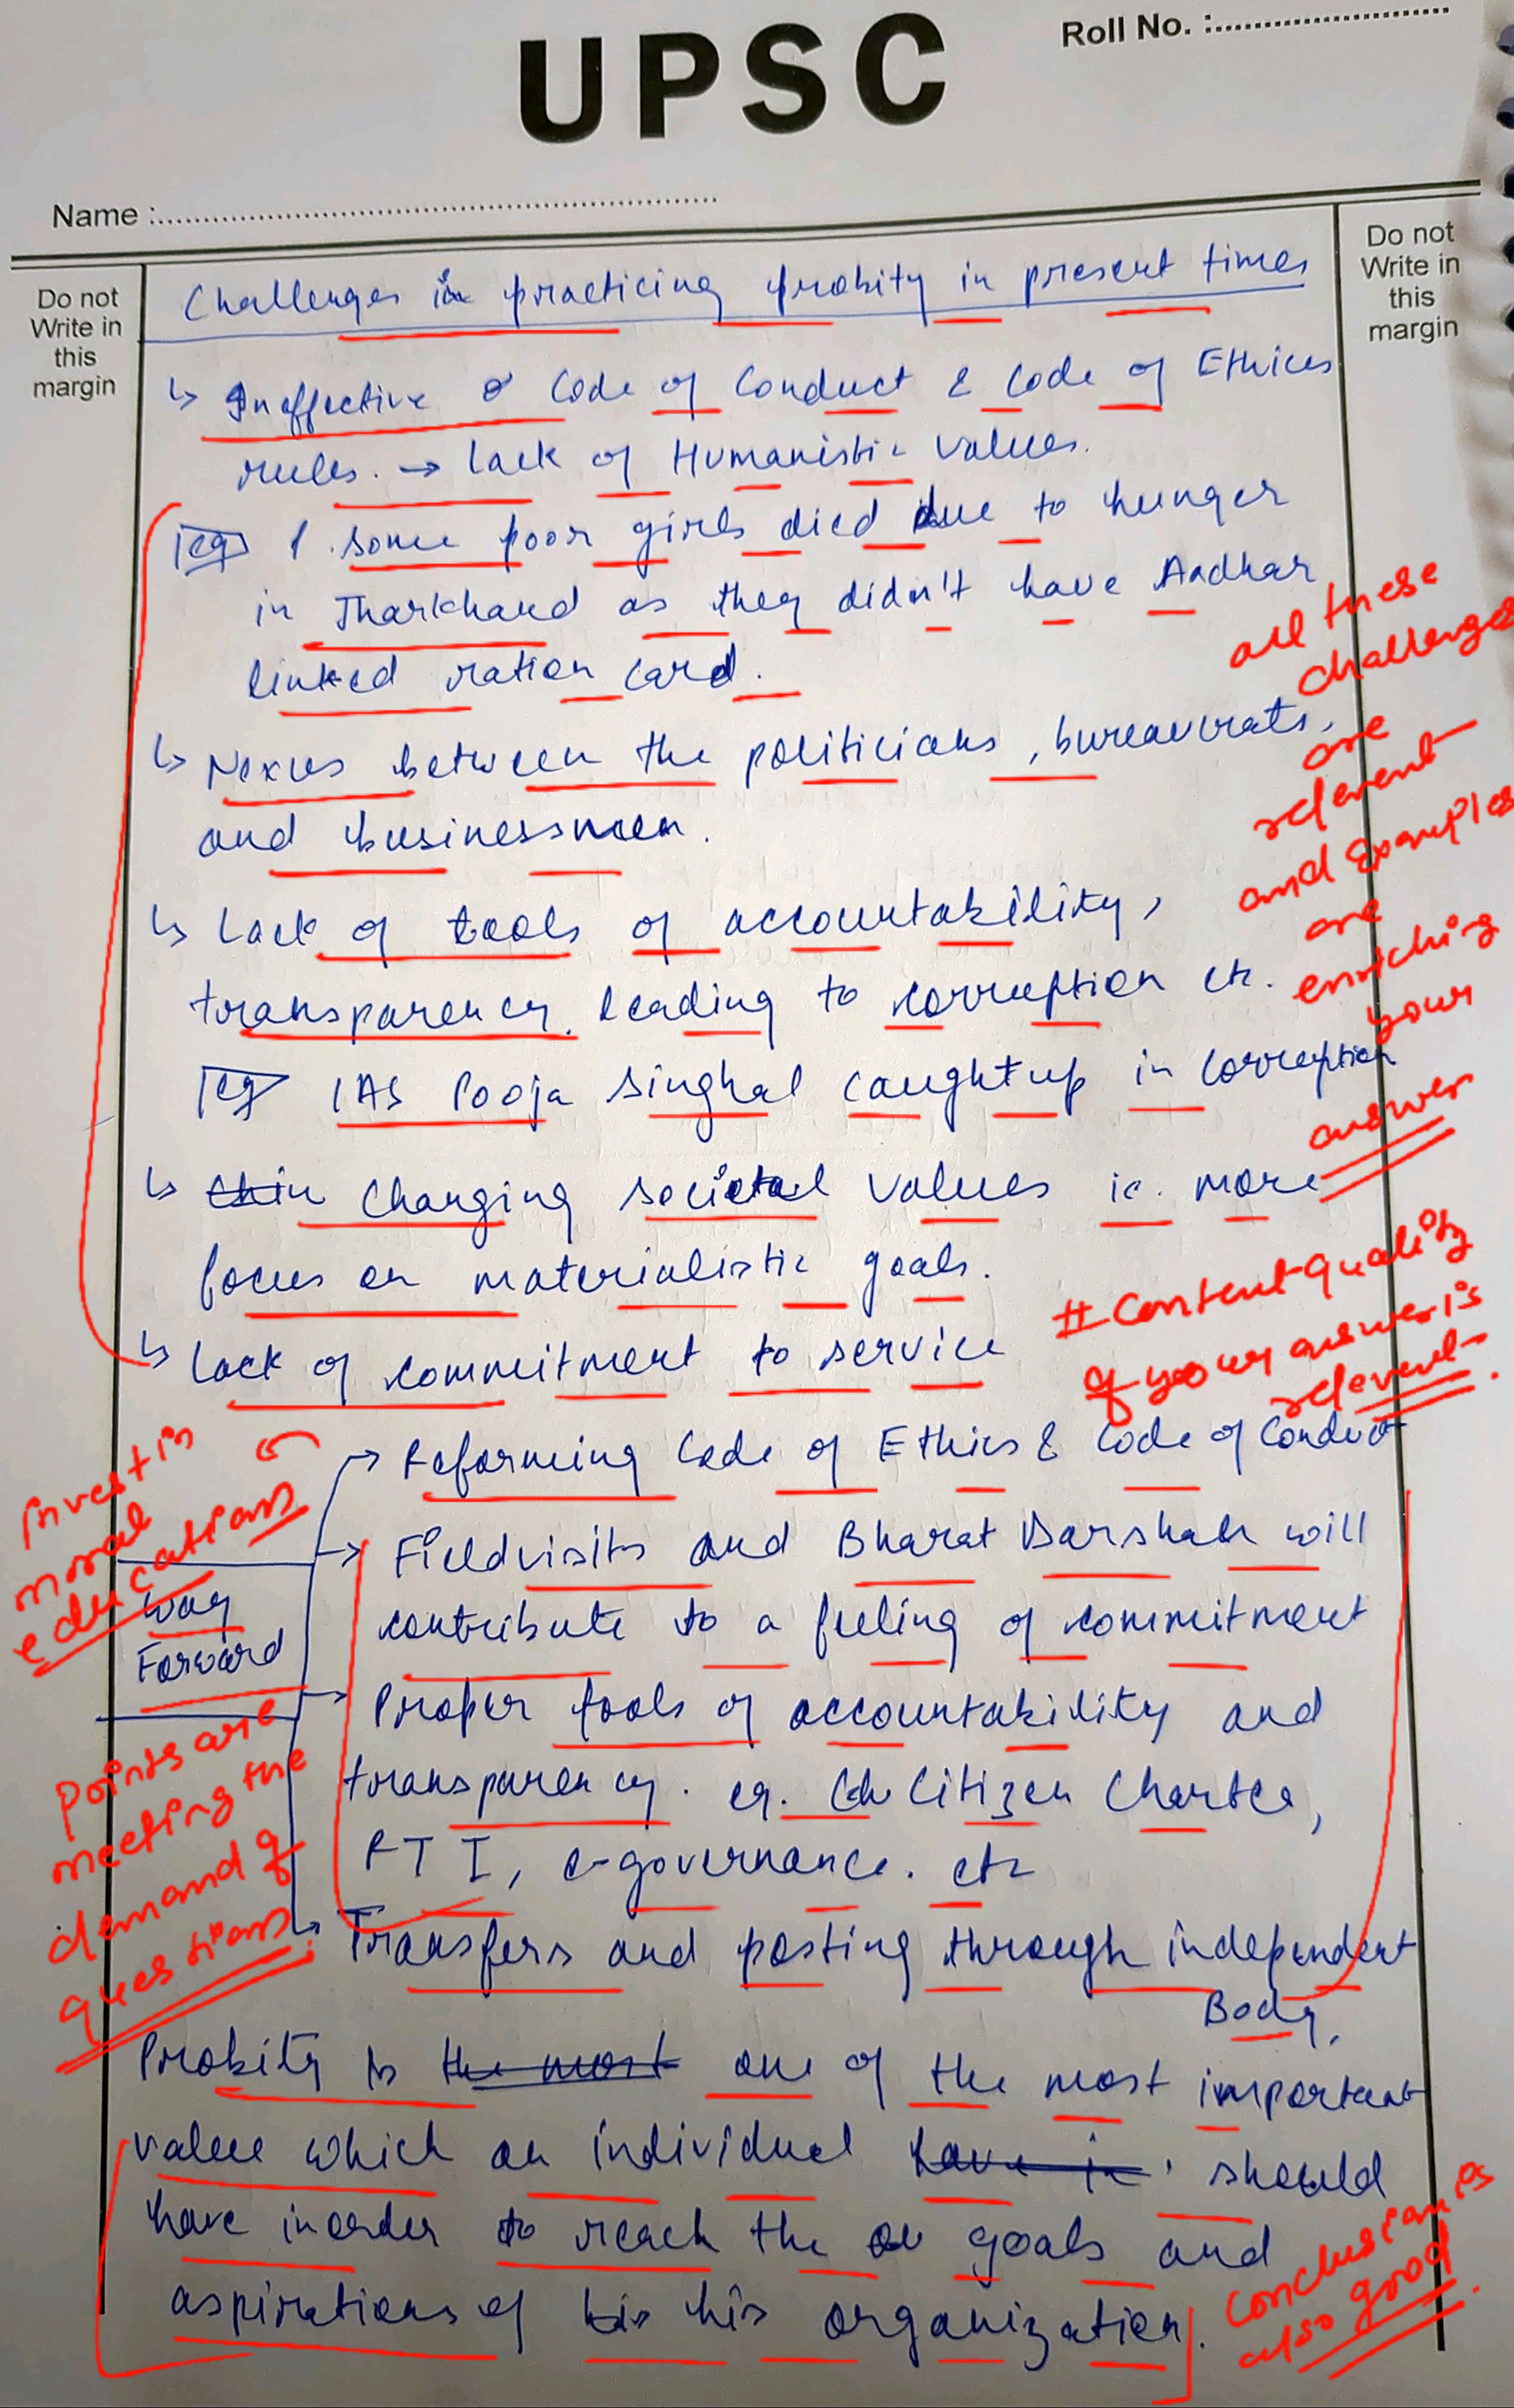 UPSC
Roll No. :
Name :
Do not
Write in
this
margin
Do not
Write in
this
margin
Challenges in practicing probity in present times
↳ Ineffective Code of Conduct & Code of Ethics
rules. → Lack of Humanistic values.
eg 1. some poor girls died due to hunger
in Jharkhand as they didn't have Aadhar
linked ration card.
↳ Nexus between the politicians, bureaucrats,
and businessmen.
↳ Lack of tools of accountability,
transparency leading to corruption etc.
eg IAS Pooja Singhal caught up in corruption
↳ Changing societal values ie. more
focus on materialistic goals.
↳ Lack of commitment to service
all these
challenges
are
relevent
and examples
are
enriching
your
answer
# Content quality
of your answer is
relevent.
invest in
moral
educations
Way
Forward
→ Reforming Code of Ethics & Code of Conduct
→ Fieldvisits and Bharat Darshan will
contribute to a feeling of commitment
→ Proper tools of accountability and
transparency. eg. Citizen Charter,
RTI, e-governance. etc
→ Transfers and posting through independent
Body.
Points are
meeting the
demand of
questions.
Probity is the most one of the most important
value which an individual have in should
have inorder to reach the goals and
aspirations of his organization.
Conclusion is
also good